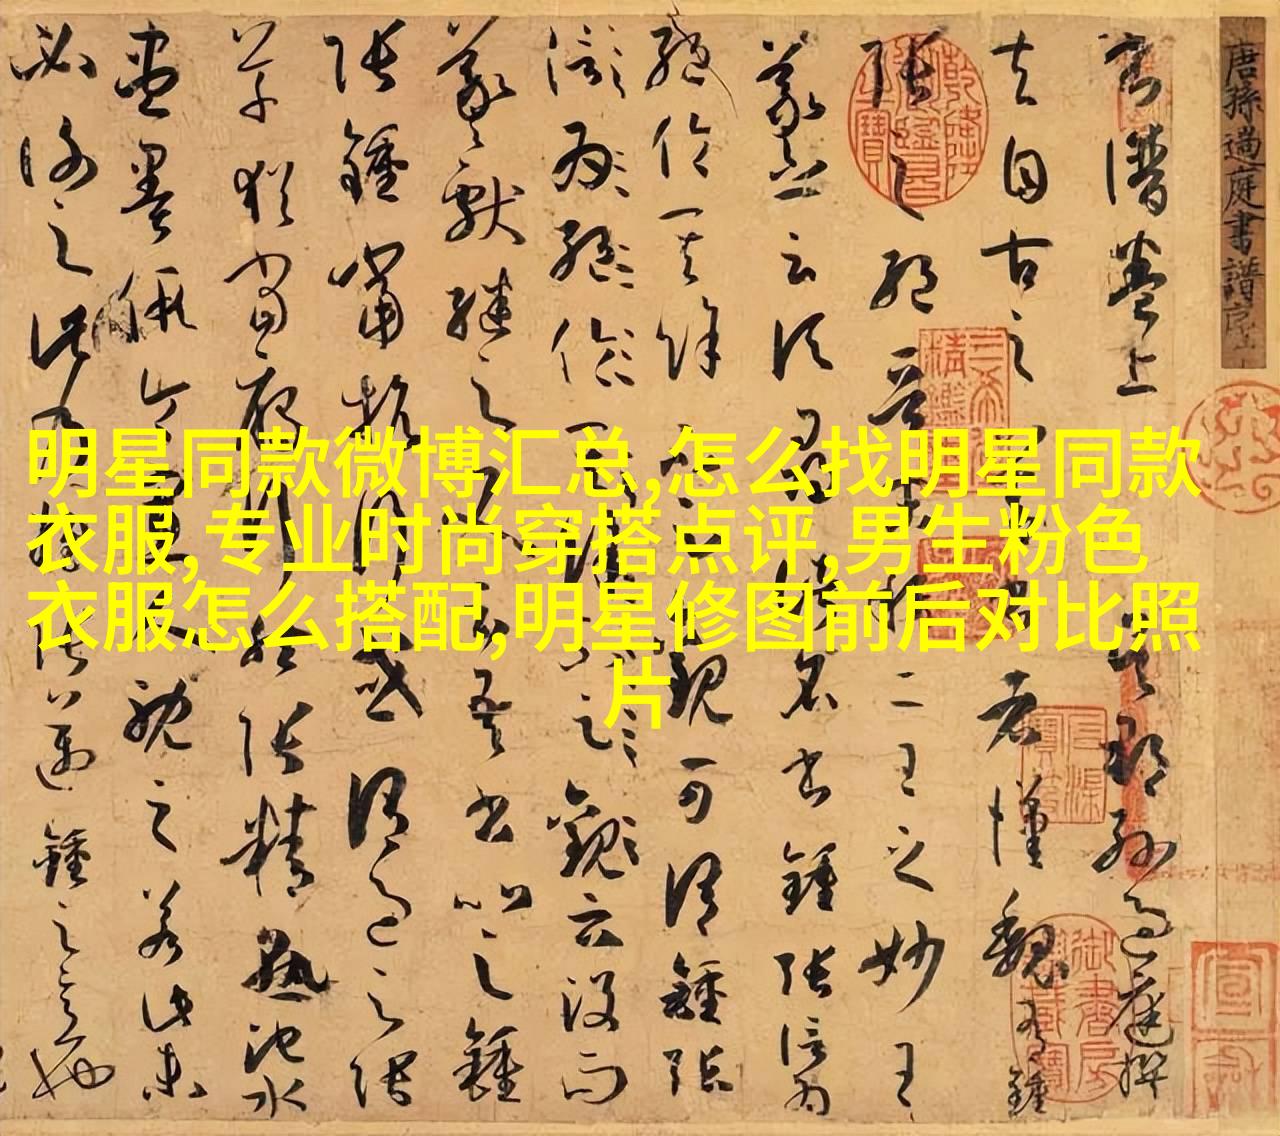 唐孫過庭書譜序
書譜卷上 吳郡孫過庭撰
夫自古之善書者漢魏有鍾
張之絕晉末稱二王之妙王
羲之云頃尋諸名書鍾張信為
絕倫其餘不足觀可謂鍾張
云沒而
羲獻繼之又云吾書比之鍾
張鍾當抗行或謂過之張
草猶當鴈行然張精熟池水
盡墨假令寡人耽之若此未
必後之此乃推張邁鍾之意也
明星同款微博汇总,怎么找明星同款
衣服,专业时尚穿搭点评,男生粉色
衣服怎么搭配,明星修图前后对比照
片